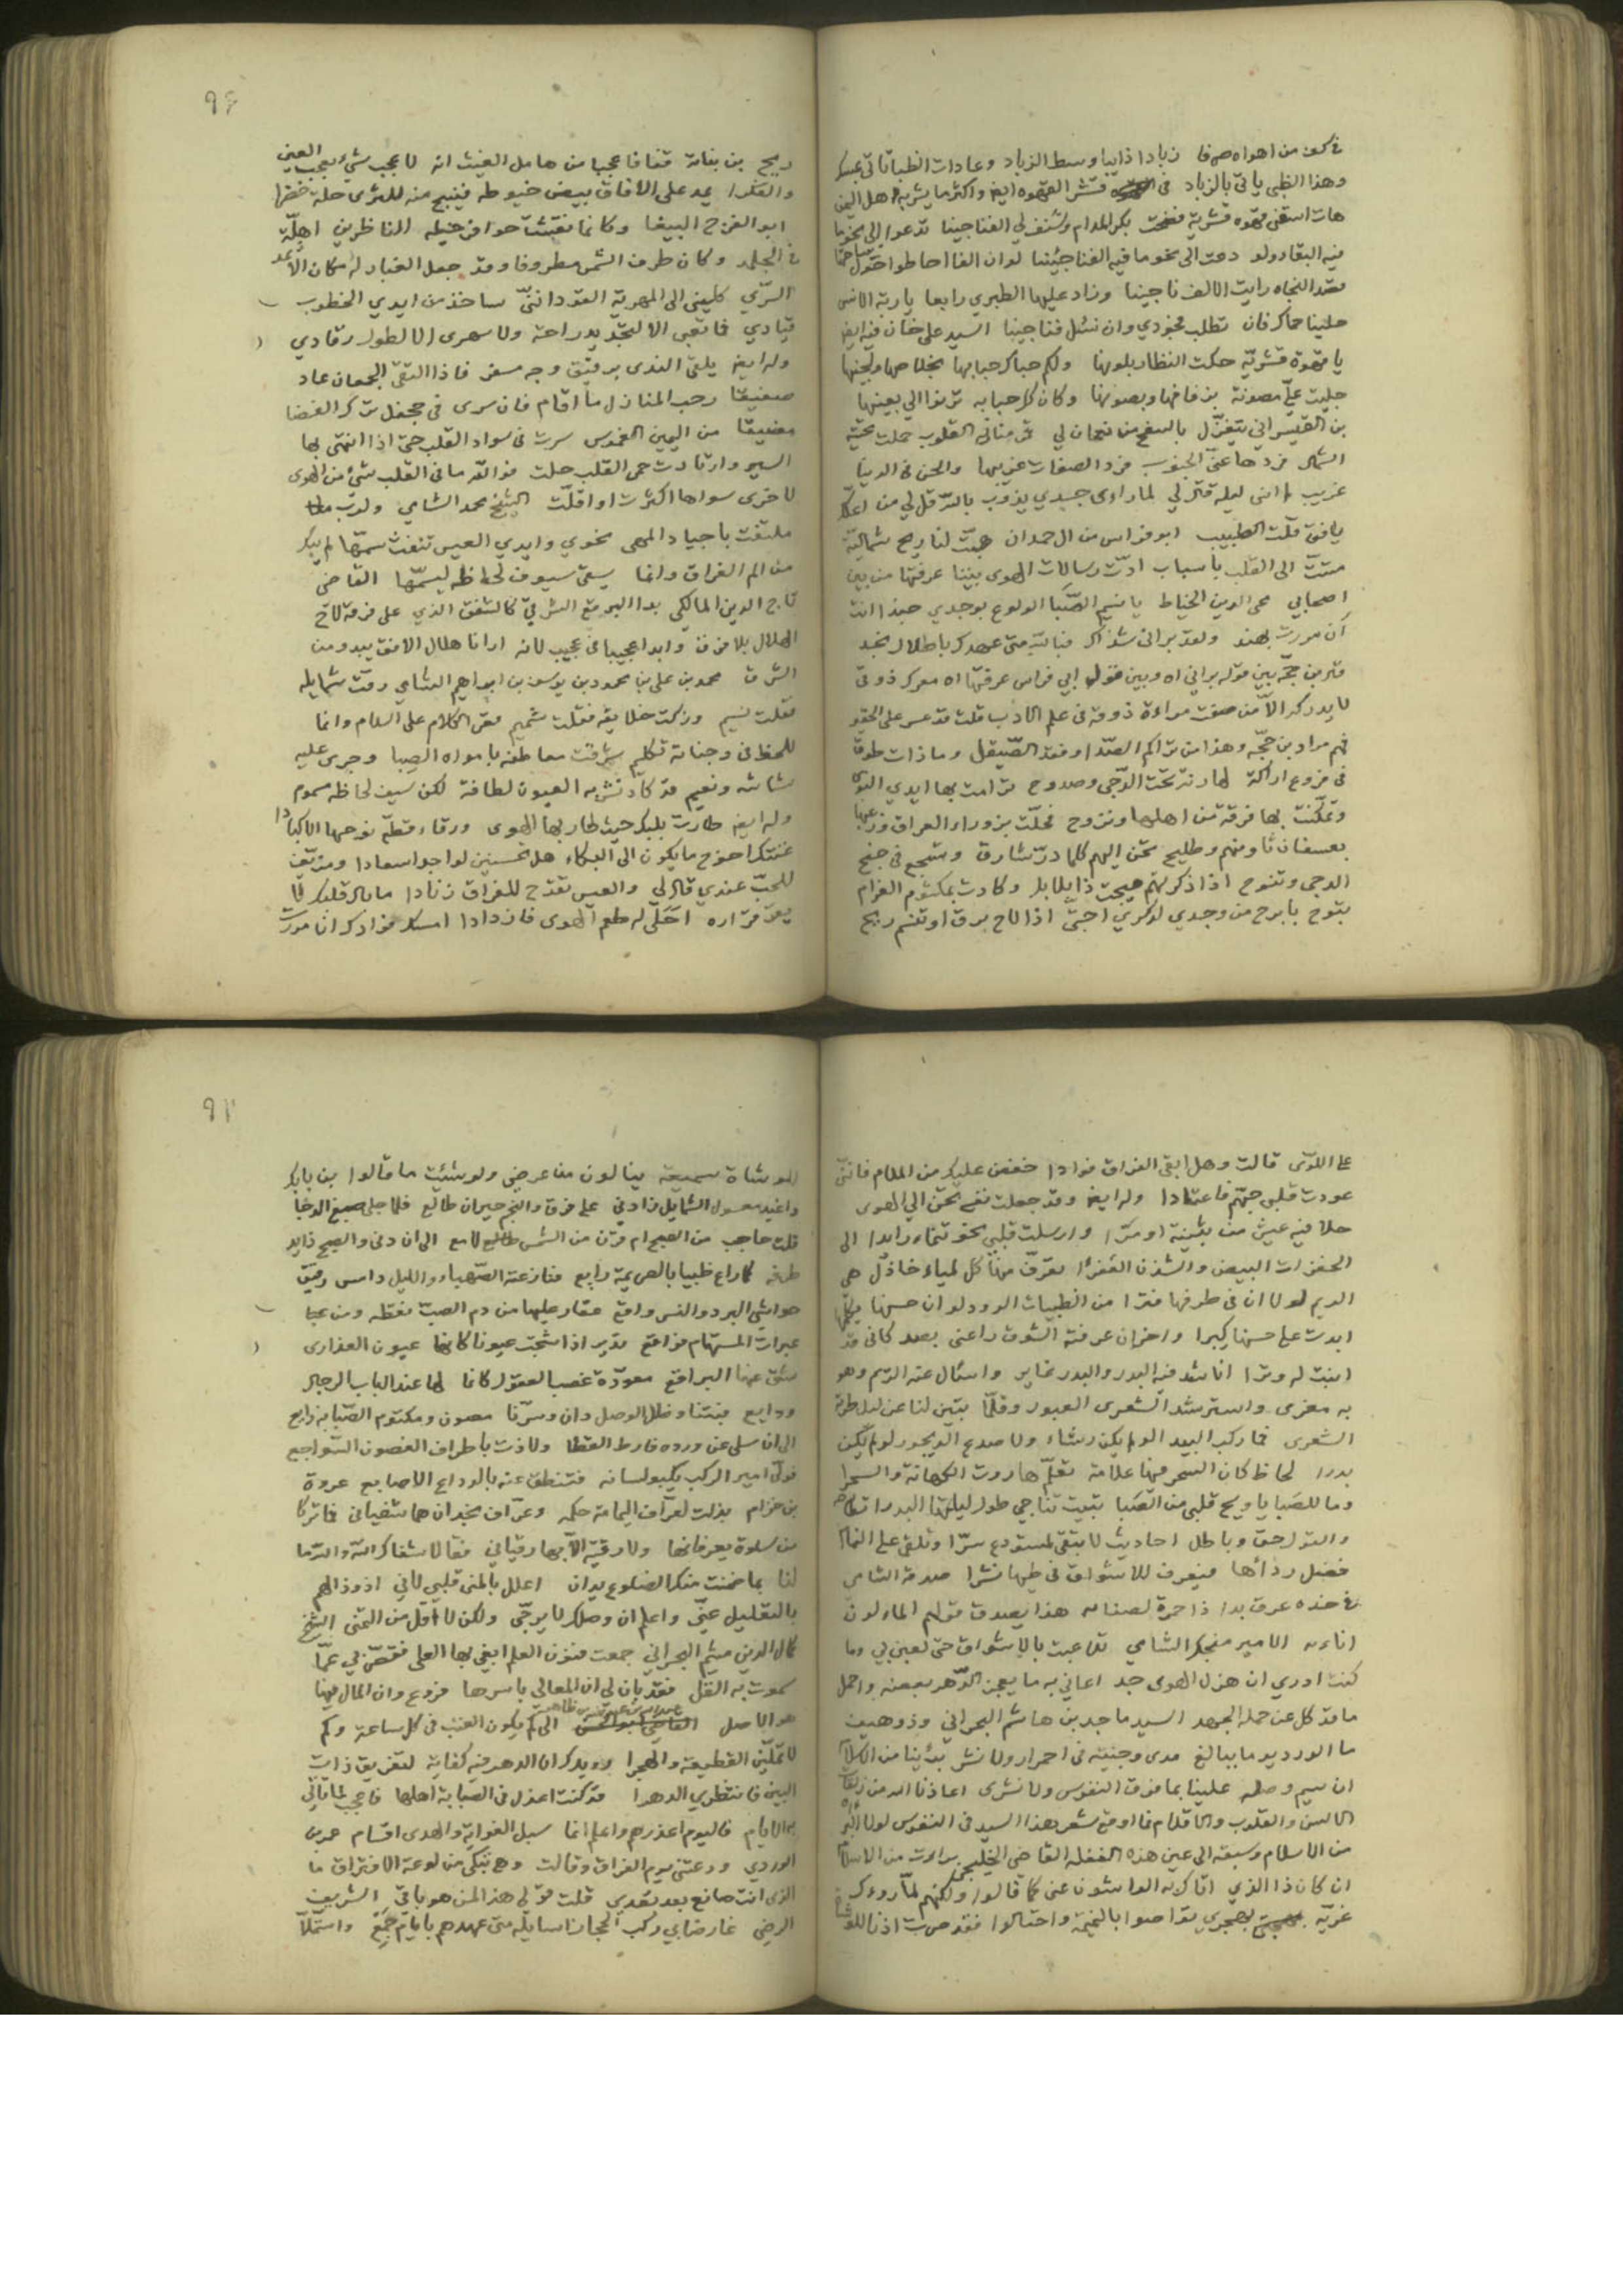 في كفه من اهواه صرفا زبادا ذايبا وسط الزباد وعادات الظبا تاتي بمسك
وهذا الظبي ياتي بالزباد في قشر القهوه ايضا واكثر ما يشربه اهل اليمن
هات اسقني قهوه قشرية فضحت بكر المدام وشنف لي الفناجينا تدعوا الى نحو ما
فيه البقا ولو دعت الى نحو ما فيه الفنا جينا لو ان الفا احاطوا حول
فقد النجاه رايت الالف ناجينا وزاد عليها الطبري رابعا يا ربة الانس
حيينا حماك فان نطلب نجودي وان نسئل فناجينا السيد علي خان فيه ايضا
يا قهوة قشريّة حكت النظار بلونها ولكم حباك حبابها بخلاصها ولجينها
جليت عليّ مصونة بزفافها وبصونها وكان كل حبابه ترنوا الي بعينها
بن القيسراني يتغزّل بالسفح من نعمان لي قمر منازله القلوب حملت تحيته
الشمال فردها عنّي الجنوب فرد الصفات غريبها والحسن في الدنيا
غريب لم انس ليله قال لي لما راى جسدي يذوب بالله قل لي من اعلك
يا فتى قلت الطبيب ابو فراس من ال حمدان هبّت لنا ريح شماليّة
متتّ الى القلب بأسباب ادّت رسالات الهوى بيننا عرفتها من بين
اصحابي محي الدين الخياط يا نسيم الصّبا الولوع بوجدي حبذا انت
ان مررت بهند ولقد براني شذاك فبالله متى عهدك باطلال نجد
قلت بن حجّه بين قوله براني اه وبين قول ابي فراس عرفتها اه معرك ذوقي
لا يدركه الّا من صفت مراءة ذوقه في علم الادب قلت قد عسر على الحقير
فهم مراد بن حجّه وهذا من تراكم الصّدا وفقد الصّيقل وما ذات طوق
في فروع اراكة لها رنة تحت الدّجى وصدوح ترامت بها ايدي النوى
وتمكّنت بها فرقة من اهلها ونزوح فحلّت بزوراء العراق وزغبها
بعسفان ثاو منهم وطليح تحن اليهم كلما درّ شارق وتسجع في جنح
الدجى وتنوح اذا ذكرتهم هيجت ذا بلابل وكادت بمكتوم الغرام
تبوح بابرح من وجدي لذكراي احبتي اذا لاح برق او تنسم ريح
ربح بن بغاة قنفا فاعجبا من هامل الغيث انه لاعجب شيء يعجب العين
والفكرا يمد على الافاق بيض خيوطه فينسج منه للثرى حلة خضرا
ابو الفرج الببغا وكانما نقشت حوافر خيله للناظرين اهلّة
في الجلمد وكان طرف الشمس مطروفا وقد جعل الغبار له مكان الاثمد
السرّي كليني الى المهرية القود انّني ساخذ من ايدي الخطوب
قيادي فما تعبي الا لتجديد راحة ولا سهري الا لطول رقادي
وله ايضا يلقى الندى برقيق وجه مسفر فاذا التقى الجمعان عاد
صفيقا رحب المنازل ما اقام فان سرى في جحفل ترك الفضا
مضيقا من اليمين الغموس سرت في سواد القلب حتى اذا انتهى بها
السير وارتادت حمى القلب حلت فوالله ما في القلب شيء من الهوى
لاخرى سواها اكثرت او اقلّت الشيخ محمد الشامي ولرب
ملتفت باجياد المهى نحوي وايدي العيس تنفث سمّها لم يبك
من الم الفراق وانما يسقي سيوف لحاظه ليسمّها القاضي
تاج الدين المالكي بدا البرقع الشرقيّ كالشفق الذي على فرقه لاح
الهلال بلا فرق وابدا عجيبا في عجيب لانه ارانا هلال الافق يبدو من
الشرق محمد بن علي بن محمود بن يوسف بن ابراهيم الشامي رقت شمايله
فقلت نسيم وزكت خلايقه فقلت شميم قصر الكلام على السلام وانما
للحظ في وجناته تكليم شرقت معاطفه بامواه الصبا وجرى عليه
نشاشة ونعيم قد كاد تشربه العيون لطافة لكن سيف لحاظه مسموم
وله ايضا طارت بلبك حيث طار بها الهوى ورقاء قطّع نوحها الاكبادا
غنتك احوج ما يكون الى البكاء هل تحسنين لواجد اسعادا ومدنف
للحبّ عندي قال لي والعيس تقدح للفراق زنادا ما بال قلبك لا
يعد قراره احلى له طعم الهوى فازدادا امسك فوادك ان مررت
على اللوّى قالت وهل ابقى الفراق فوادا خفض عليك من الملام فانّني
عودت قلبي جبهم فاعتادا وله ايضا وقد جعلت نفسي تحن الى الهوى
حلا فيه عيش من بثينة او مرّا وارسلت قلبي نحو تيماء رايدا الى
الخفرات البيض والشدن العفرا تعرّف منها كل لمياء خاذل هي
الريم لولا ان في طرفها فترا من الظبيات الرود لو ان حسنها يكلمها
ابدت على حسنها كبرا واخران عرفته الشوق راعني بصد كاني قد
ابنت له وترا اناشد فيه البدر والبدر غاير واسئال عنه الريم وهو
به مغرى واسترشد الشعرى العبور وقلّما تبيّن لنا عن ليل طرة
الشعرى فما ركب البيد الو لم يكن رشاء ولا صدع الديجور لو لم يكن
بدرا لحاظ كان السحر فيها علامة تعلّم هاروت الكهانة والسحرا
وما للصبا يا ويح قلبي من الصبا تبيت تناجي طول ليلتها البدرا
والقول حق وباطل احاديث لا تبقى لمستودع سرّا وتلقي على النمام
فضل ردائها فيعرف للاشواق في طيها نشرا صدقة الشامي
في خده عرق بدا ذا حمرة لصفائه هذا يصدق قولهم الماء لون
اناءه الامير منجك الشامي تلاعبت بالاشواق حتى لعبن بي وما
كنت ادري ان هزل الهوى جد اعاني به ما يعجز الدّهر بعضه واحمل
ما قد كل عن حمله الجهد السيد ماجد بن هاشم البحراني وذو هيف
ما الورد يوما ببالغ مدى وجنتيه في احمرار ولا نشر بدأنا من السلام
ان سيم وصله علينا بما فوق النفوس ولا نشرى اعاذنا الله من زلات
الالسن والقلوب والاقلام فما اوقع شعر هذا السيد في النفوس لولا
من الاسلام وسبقه الى عين هذه الغفله القاضي الخليجي برات من الاسلام
ان كان ذا الذي اتاك به الواشون عني كما قالوا ولكنهم لمّا راوك
غريّه بهجري تواصوا بالنميمة واحتالوا فقد صرت اذنا للوشاة
للوشاة سميعة ينالون من عرضي ولو شئت ما قالوا بن بابك
واغيد معسول الشمايل زارني على فرق والنجم حيران طالع فلما جلى صبغ الدجا
قلت حاجب من الصبح ام قرن من الشمس لامع الى ان دنى والصبح ذايد
طرفه كما راع ظبيا بالصريمة رايع فنازعته الصّهباء والليل دامس رقيق
حواشي البرد والنسر واقع عقار عليها من دم الصب نقطه ومن
عبرات المستهام فواقع تدير اذا شجت عيونا كانها عيون العذارى
شق عنها البراقع معوّدة غصب العقول كانما لها عند الباب الرجال
ودايع فبتنا وظل الوصل دان وسرّنا مصون ومكتوم الصبابة ذايع
الى ان سلى عن ورده فارط القطا ولاذت باطراف الغصون السواجع
فولّى اسير الركب يكبو لسانه فتنطق عنه بالوداع الاصابع عروة
بن حزام بذلت لعرّاف اليمامة حكمه وعرّاف نجد ان هما شفياني فما تركا
من سلوة يعرفانها ولا رقية الّا بها رقياني فقالا شفاك الله والله ما
لنا بما ضمنت منك الضلوع يدان اعلل بالمنى قلبي لاني اذوذ الهم
بالتعليل عنّي واعلم ان وصلك لا يرجّى ولكن لا اقل من التمني الشيخ
كمال الدين ميثم البحراني جمعت فنون العلم ابغي بها العلى فقصّر بي عمّا
سموت به القل فقد بان لي ان المعالي باسرها فروع وان المال فيها
هو الاصل الى كم يكون العتب في كل ساعة وكم
لا تملّين القطيعة والهجرا رويدك ان الدهر فيه كفاية لتفريق ذات
البين فانتظري الدهرا قد كنت اعذل في الصبابة اهلها فاعجب لما تاتي
به الايام فاليوم اعذرهم واعلم انما سبل الغواية والهدى اقسام عمر بن
الوردي ودعتني يوم الفراق وقالت وهي تبكي من لوعة الافتراق ما
الذي انت صانع بعد بعدي قلت قولي هذا لمن هو باقي الشريف
الرضي عارضا بي ركب الحجاز اسايله متى عهدهم بايام جمع واستملّا